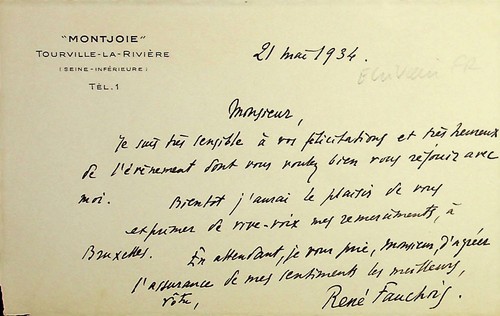 "MONTJOIE"
TOURVILLE-LA-RIVIÈRE
(SEINE-INFÉRIEURE)
TÉL. 1
21 mai 1934.
Ecrivain FR
Monsieur,
Je suis très sensible à vos félicitations et très heureux
de l'évènement dont vous voulez bien vous réjouir avec
moi. Bientôt j'aurai le plaisir de vous
exprimer de vive-voix mes remerciments, à
Bruxelles. En attendant, je vous prie, Monsieur, d'agréer
l'assurance de mes sentiments les meilleurs,
vôtre,
René Fauchois.